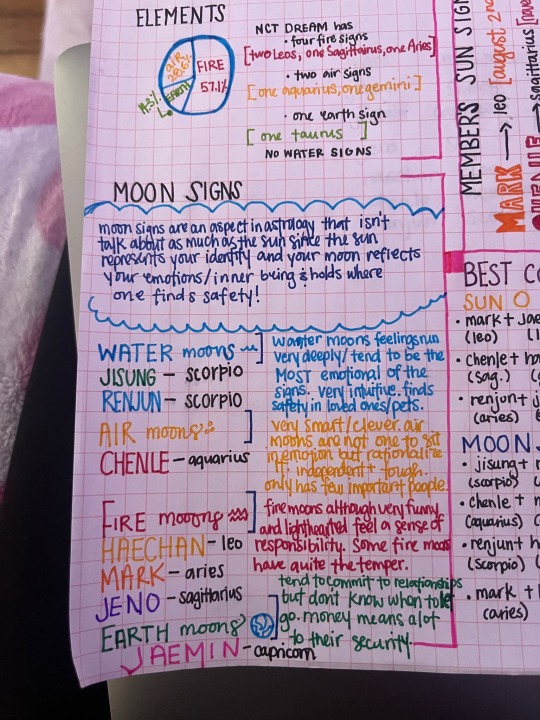 ELEMENTS
AIR
28.6%
FIRE
57.1%
EARTH
14.3%
NCT DREAM has
• four fire signs
[two Leos, one Sagittairus, one Aries]
• two air signs
[one aquarius, one gemini]
• one earth sign
[one taurus]
NO WATER SIGNS
MEMBER'S SUN SIGN
MARK → leo [august 2nd
→ Sagittarius [nove
MOON SIGNS
moon signs are an aspect in astrology that isn't
talk about as much as the sun since the sun
represents your identity and your moon reflects
your emotions/inner being & holds where
one finds safety!
WATER moons
JISUNG - scorpio
RENJUN - scorpio
water moons feelings run
very deeply/tend to be the
MOST emotional of the
signs. very intuitive. finds
safety in loved ones/pets.
AIR moons
CHENLE - aquarius
very smart/clever. air
moons are not one to sit
in emotion but rationalize
it. independent + tough.
only has few important people.
FIRE moons
HAECHAN - leo
MARK - aries
JENO - sagittarius
fire moons although very funny
and lighthearted feel a sense of
responsibility. Some fire moons
have quite the temper.
EARTH moons
JAEMIN - capricorn
tend to commit to relationships
but don't know when to let
go. money means alot
to their security.
BEST CO
SUN
• mark + jae
(leo)
• chenle + h
(sag.)
• renjun + j
(aries)
MOON
• jisung +
(scorpio)
• chenle +
(aquarius)
• renjun + h
(scorpio)
• mark +
(aries)